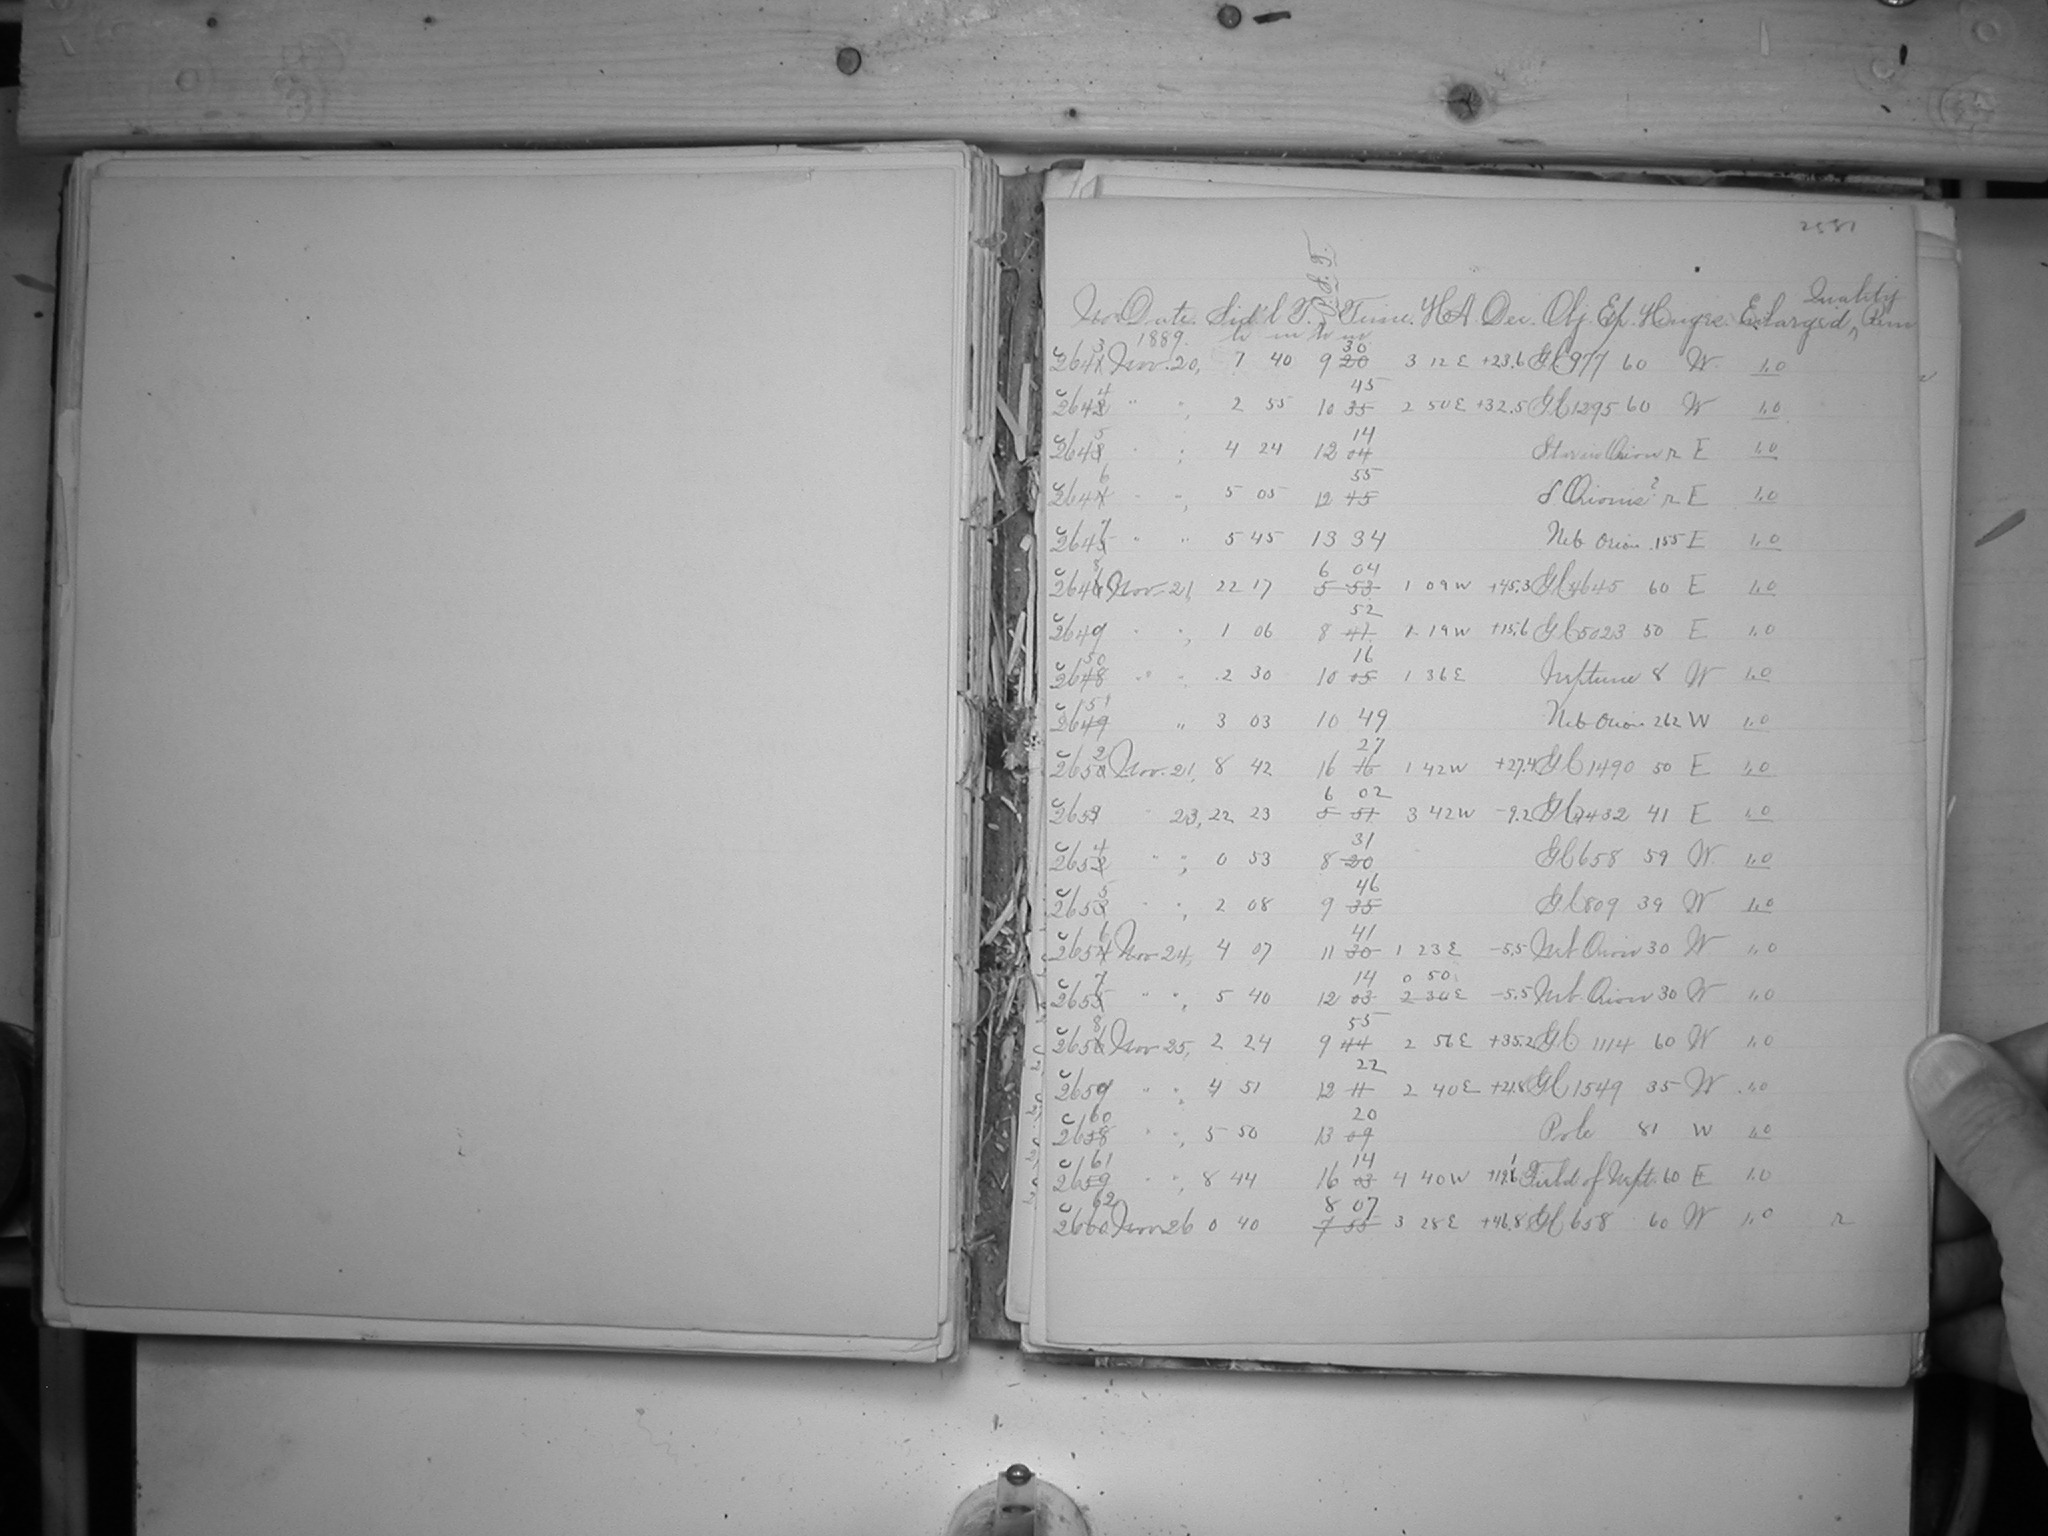 2581
P.S.T.
Quality
No. Date. Sid'l T. Time. H A. Dec. Obj. Ex. Hinges. Enlarged, Rem
1889. h m h m
3 30
C 2641 Nov. 20, 1 40 9 20 3 12 E +23.6 GC 977 60 W. 1.0
4 45
C 2642 " ", 2 55 10 35 2 50 E +32.5 GC 1295 60 W 1.0
5 14
C 2643 " ; 4 24 12 04 Star in Orion 2 E 1.0
6 55
C 2644 " ", 5 05 12 45 δ Orionis? 2 E 1.0
7
C 2645 " " 5 45 13 34 Neb Orion 155 E 1.0
8 6 04
C 2646 Nov. 21, 22 17 5 53 1 09 W +45.3 GC 4645 60 E 1.0
52
C 2649 " ", 1 06 8 41 1 19 W +15.6 GC 5023 50 E 1.0
50 16
C 2648 " " 2 30 10 05 1 36 E Neptune 8 W 1.0
51
C 2649 " 3 03 10 49 Neb Orion 262 W 1.0
2 27
C 2650 Nov. 21, 8 42 16 16 1 42 W +27.4 GC 1490 50 E 1.0
6 02
C 2653 " 23, 22 23 5 51 3 42 W -9.2 GC 4432 41 E 1.0
4 31
C 2652 " ", 0 53 8 20 GC 658 59 W. 1.0
5 46
C 2653 " ", 2 08 9 35 GC 809 39 W 1.0
6 41
C 2654 Nov 24, 4 07 11 30 1 23 E -5.5 Neb Orion 30 W 1.0
7 14 0 50
C 2655 " ", 5 40 12 03 2 30 E -5.5 Neb. Orion 30 W 1.0
8 55
C 2656 Nov 25, 2 24 9 44 2 56 E +35.2 GC 1114 60 W 1.0
22
C 2659 " ", 4 51 12 11 2 40 E +21.8 GC 1549 35 W 1.0
60 20
C 2658 " ", 5 50 13 09 Pole 81 W 1.0
61 14
C 2659 " ", 8 44 16 03 4 40 W +19.1 Field of Nept. 60 E 1.0
62 8 07
C 2660 Nov 26 0 40 7 55 3 28 E +46.8 GC 658 60 W 1.0 r